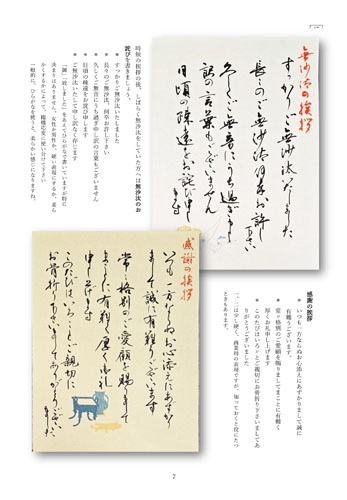 時候の挨拶の後、しばらく無沙汰をしていた方へは無沙汰のお
詫びを書きましょう。
＊ すっかりご無沙汰いたしました
＊ 長々のご無沙汰、何卒お許し下さい
＊ 久しくご無音にうち過ぎ申し訳の言葉もございません
＊ 日頃の疎遠をお詫び申します
＊ ご無沙汰いたして申し訳なく存じます
かくするかによって、臨機応変に使い分けて下さい
一般的に、ひらがなを使うと、柔らかい感じになりますね。
無沙汰の挨拶
すっかりご無沙汰いたしました
長々のご無沙汰何卒お許し
下さい
久しくご無音にうち過ぎ申し
訳の言葉もございません
日頃の疎遠をお詫び申し
ます
感謝の挨拶
いつも一方ならぬお心添えにあずかり
まして誠に有難うございます
常々格別のご愛顧を賜りまして
まことに有難く厚く御礼
申し上げます
このたびはいろいろとご親切に
お骨折り下さいましてありがとうございました
感謝の挨拶
＊ いつも一方ならぬお心添えにあずかりまして誠に
有難うございます。
＊ 常々格別のご愛顧を賜りましてまことに有難く
厚くお礼申し上げます
＊ このたびはいろいろとご親切にお骨折り下さいましてあ
りがとうございました
ときもあります。
7